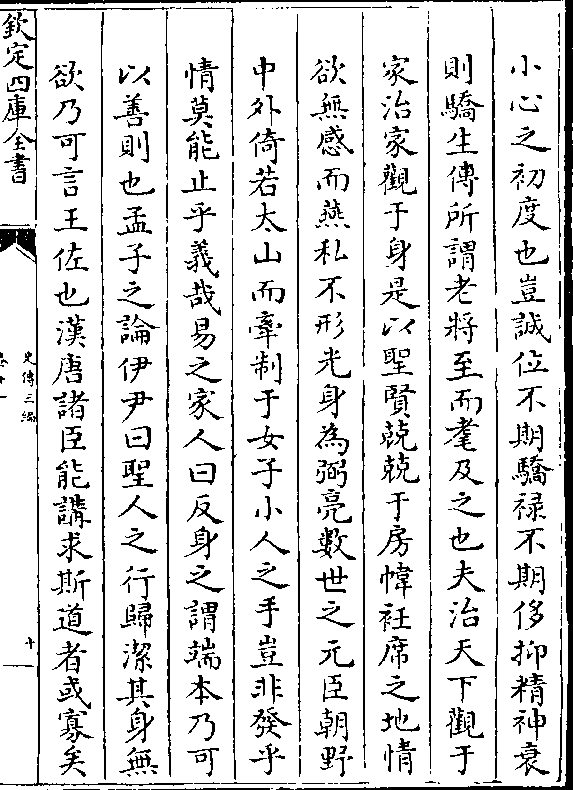 小心之初度也豈誠位不期驕禄不期侈抑精神衰
則驕生傳所謂老將至而耄及之也夫治天下觀于
家治家觀于身是以聖賢兢兢于房幃衽席之地情
欲無感而燕私不形光身為弼亮數世之元臣朝野
中外倚若太山而牽制于女子小人之手豈非發乎
情莫能止乎義哉易之家人曰反身之謂端本乃可
以善則也孟子之論伊尹曰聖人之行歸潔其身無
欲乃可言王佐也漢唐諸臣能講求斯道者或寡矣
欽定四庫全書
史傳三編
十